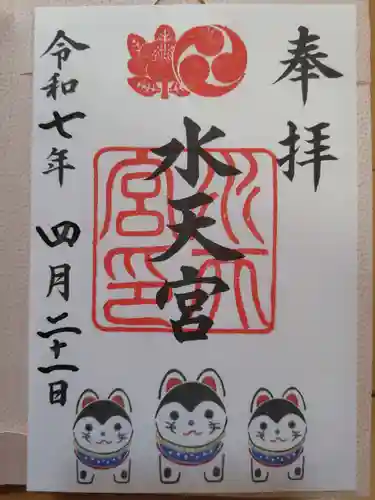 奉拝
水天宮
水天宮印
令和七年 四月二十一日